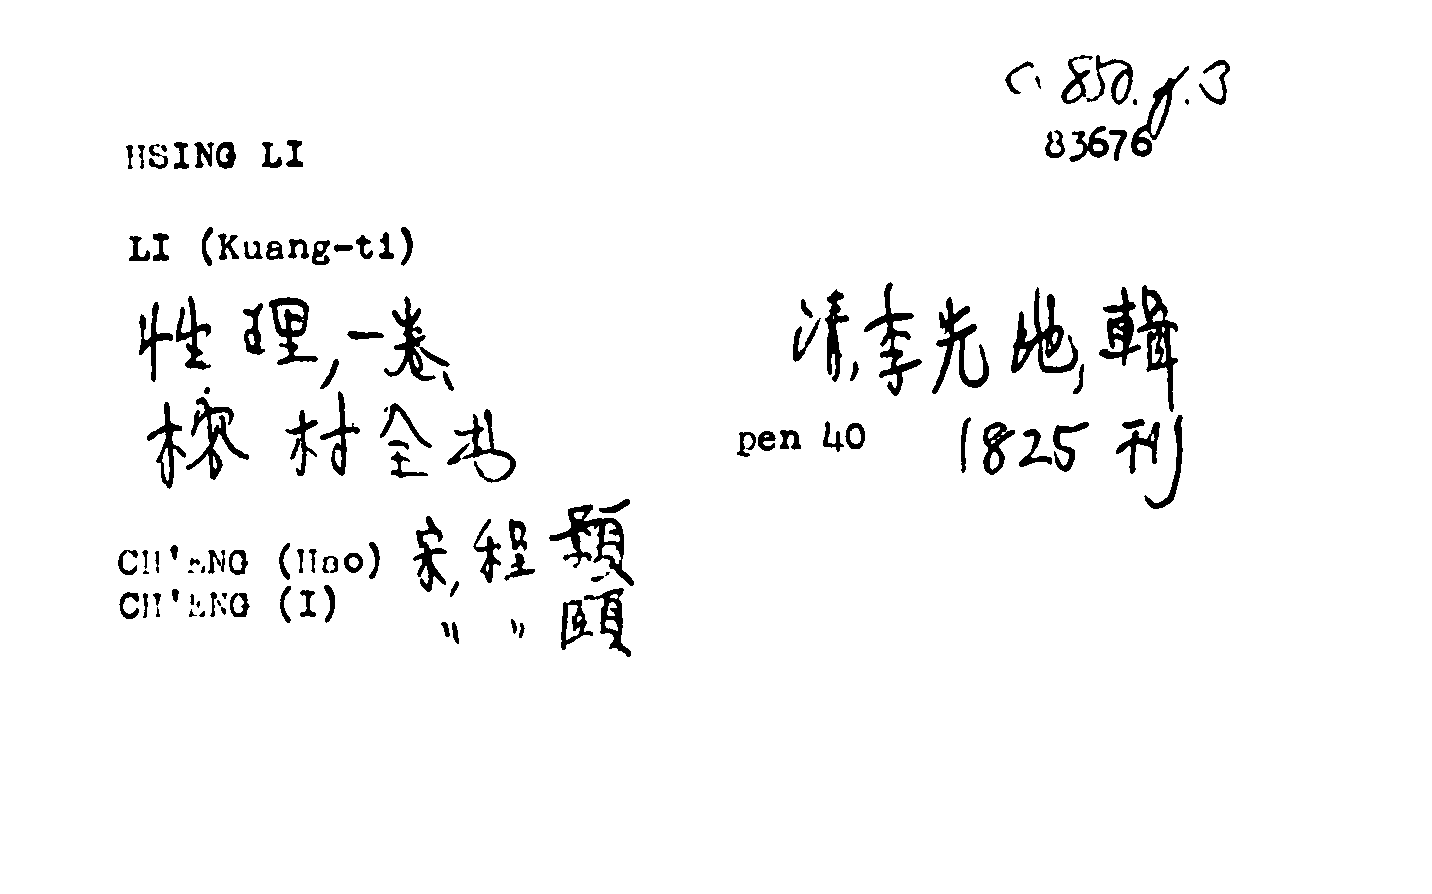 C. 850. g. 3
83676
HSING LI
LI (Kuang-ti)
性理,一卷、 清,李光地,輯
榕村全书 pen 40 1825 刊
CH'ENG (Hao) 宋,程顥
CH'ENG (I) " " 頤